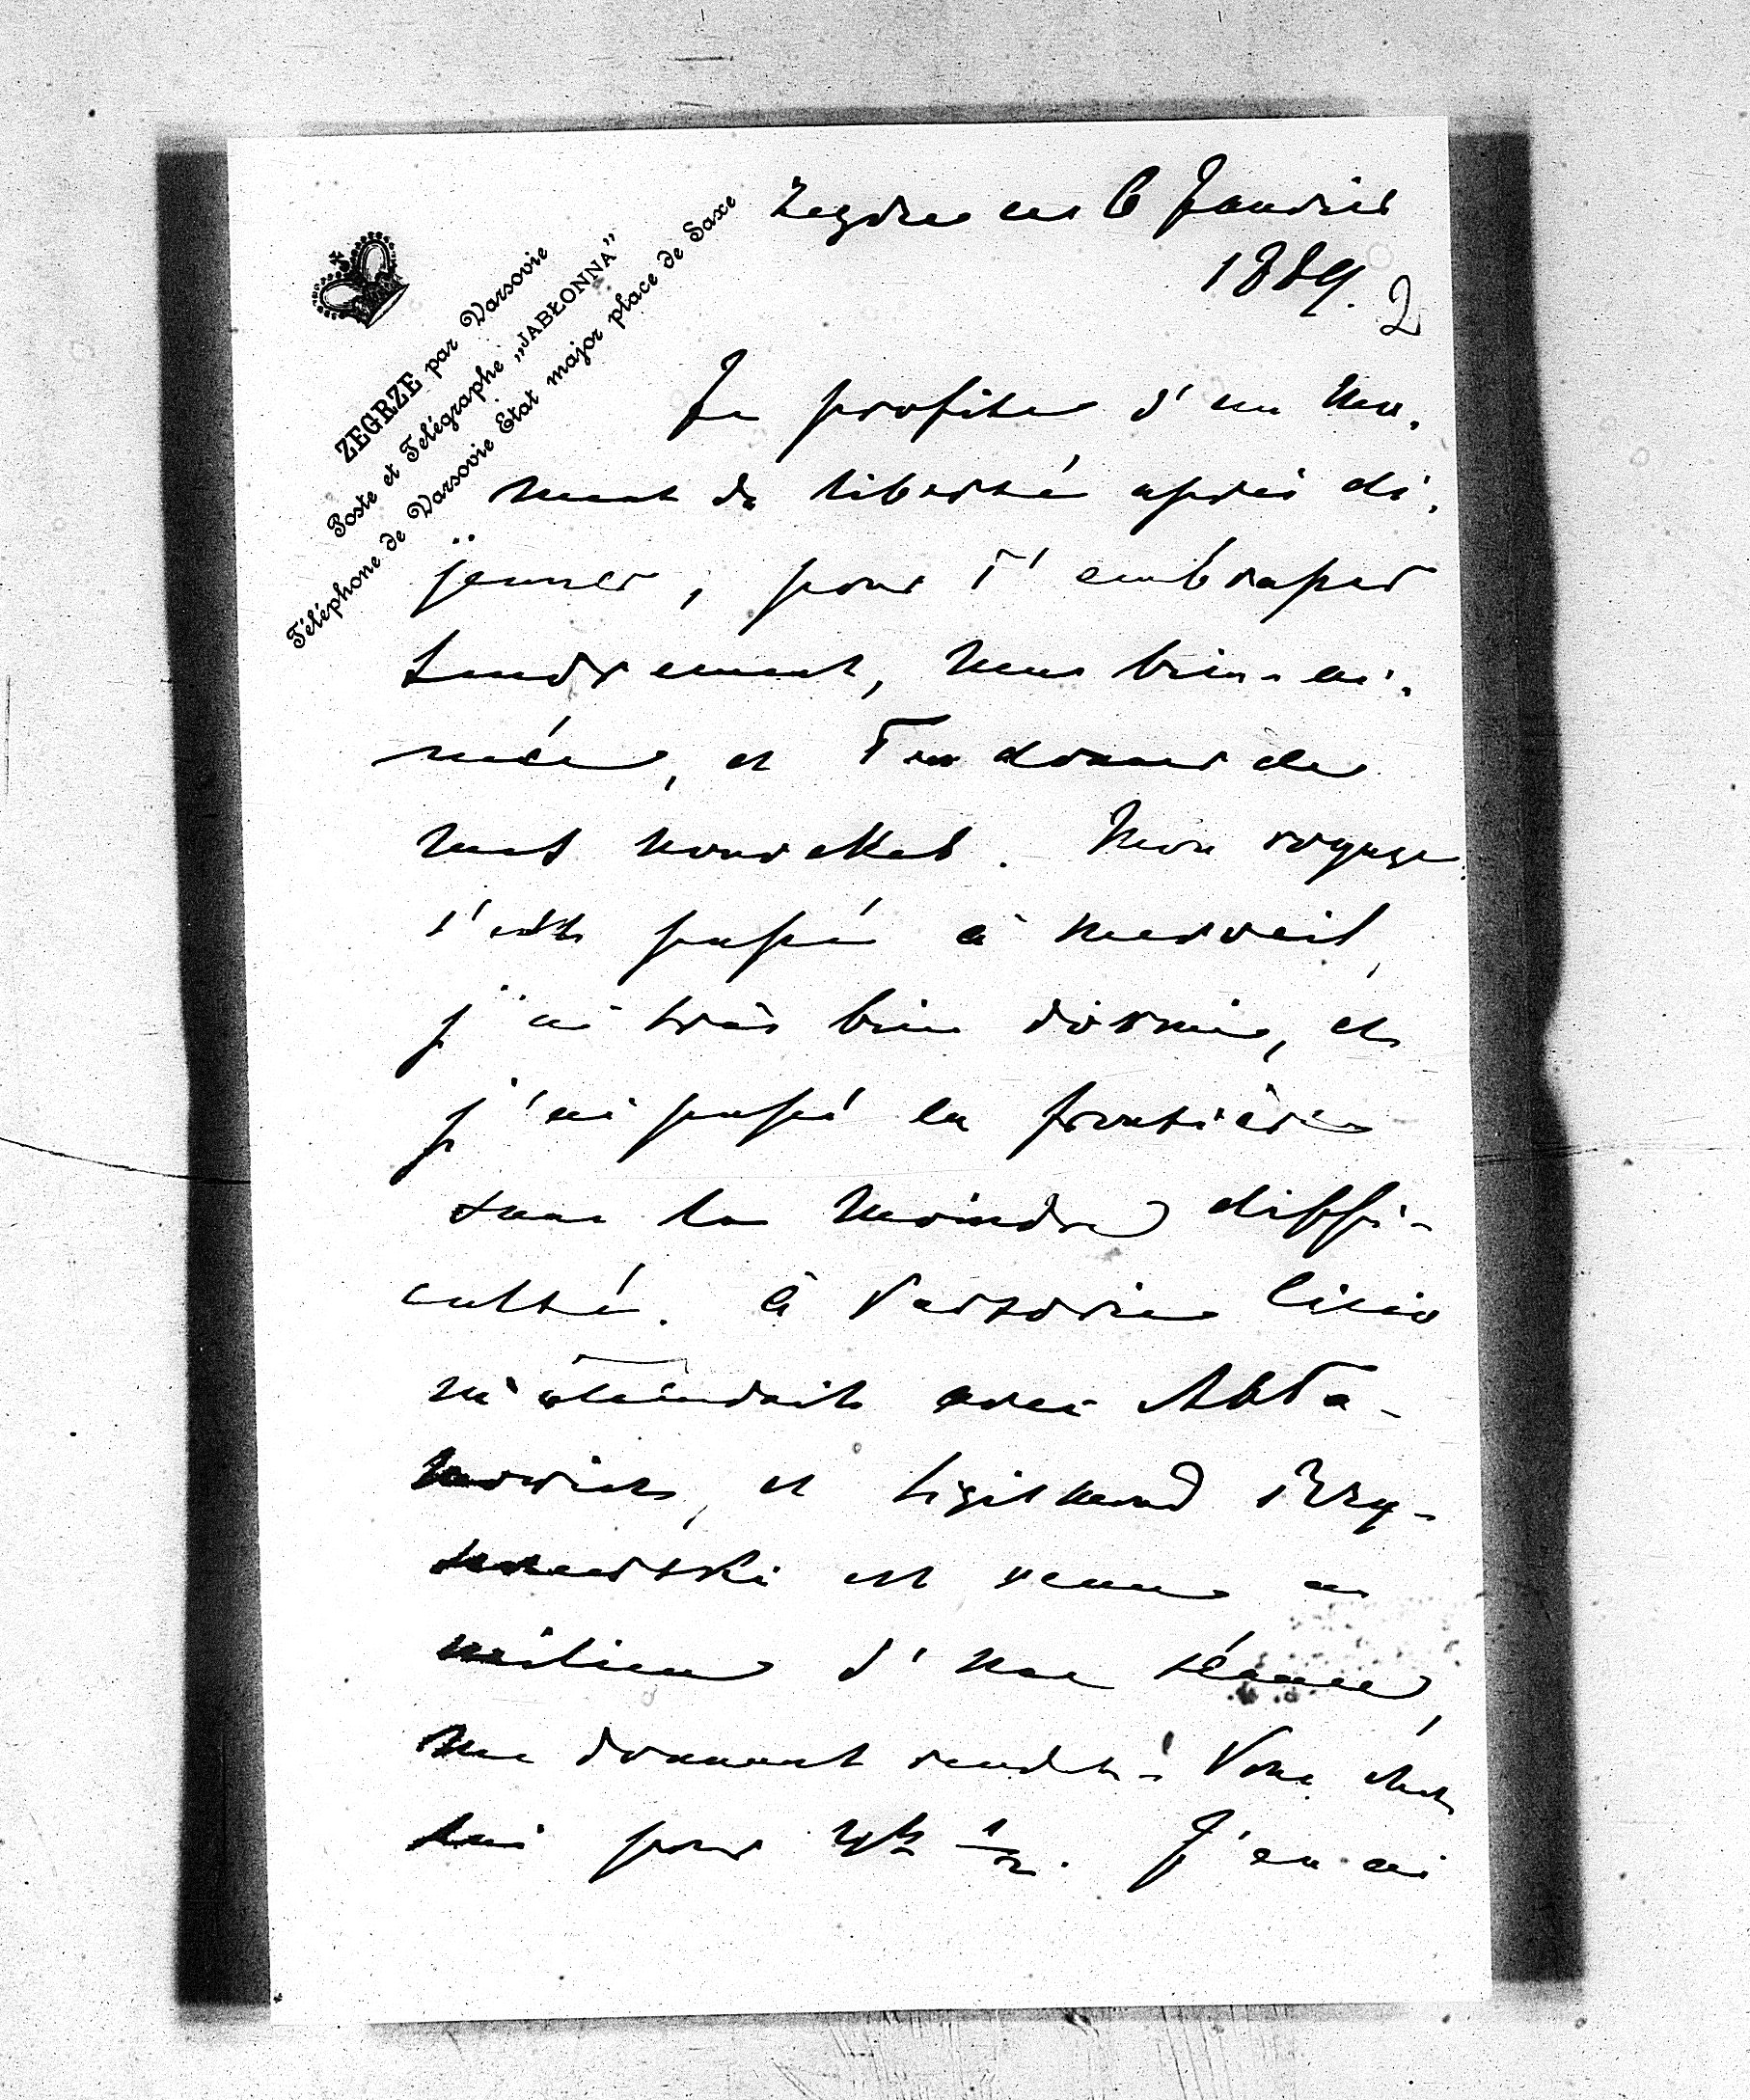 ZEGRZE par Varsovie
Poste et Télégraphe „JABŁONNA”
Téléphone de Varsovie Etat major place de Saxe
Zegrze ce 6 Janvier
1889.
2
Je profite d'un mo-
ment de liberté après dé-
jeuner, pour T'embrasser
tendrement, ma bien-ai-
mée, et Te donner de
mes nouvelles. Mon voyage
s'est passé à merveil,
j'ai très bien dormi, et
j'ai passé la frontière
sans la moindre diffi-
culté. à Varsovie
m'attendait avec
et Sigismond
est venu au
milieu d'une séance,
me donnant rendez-Vous chez
lui pour 4h 1/2. J'en ai